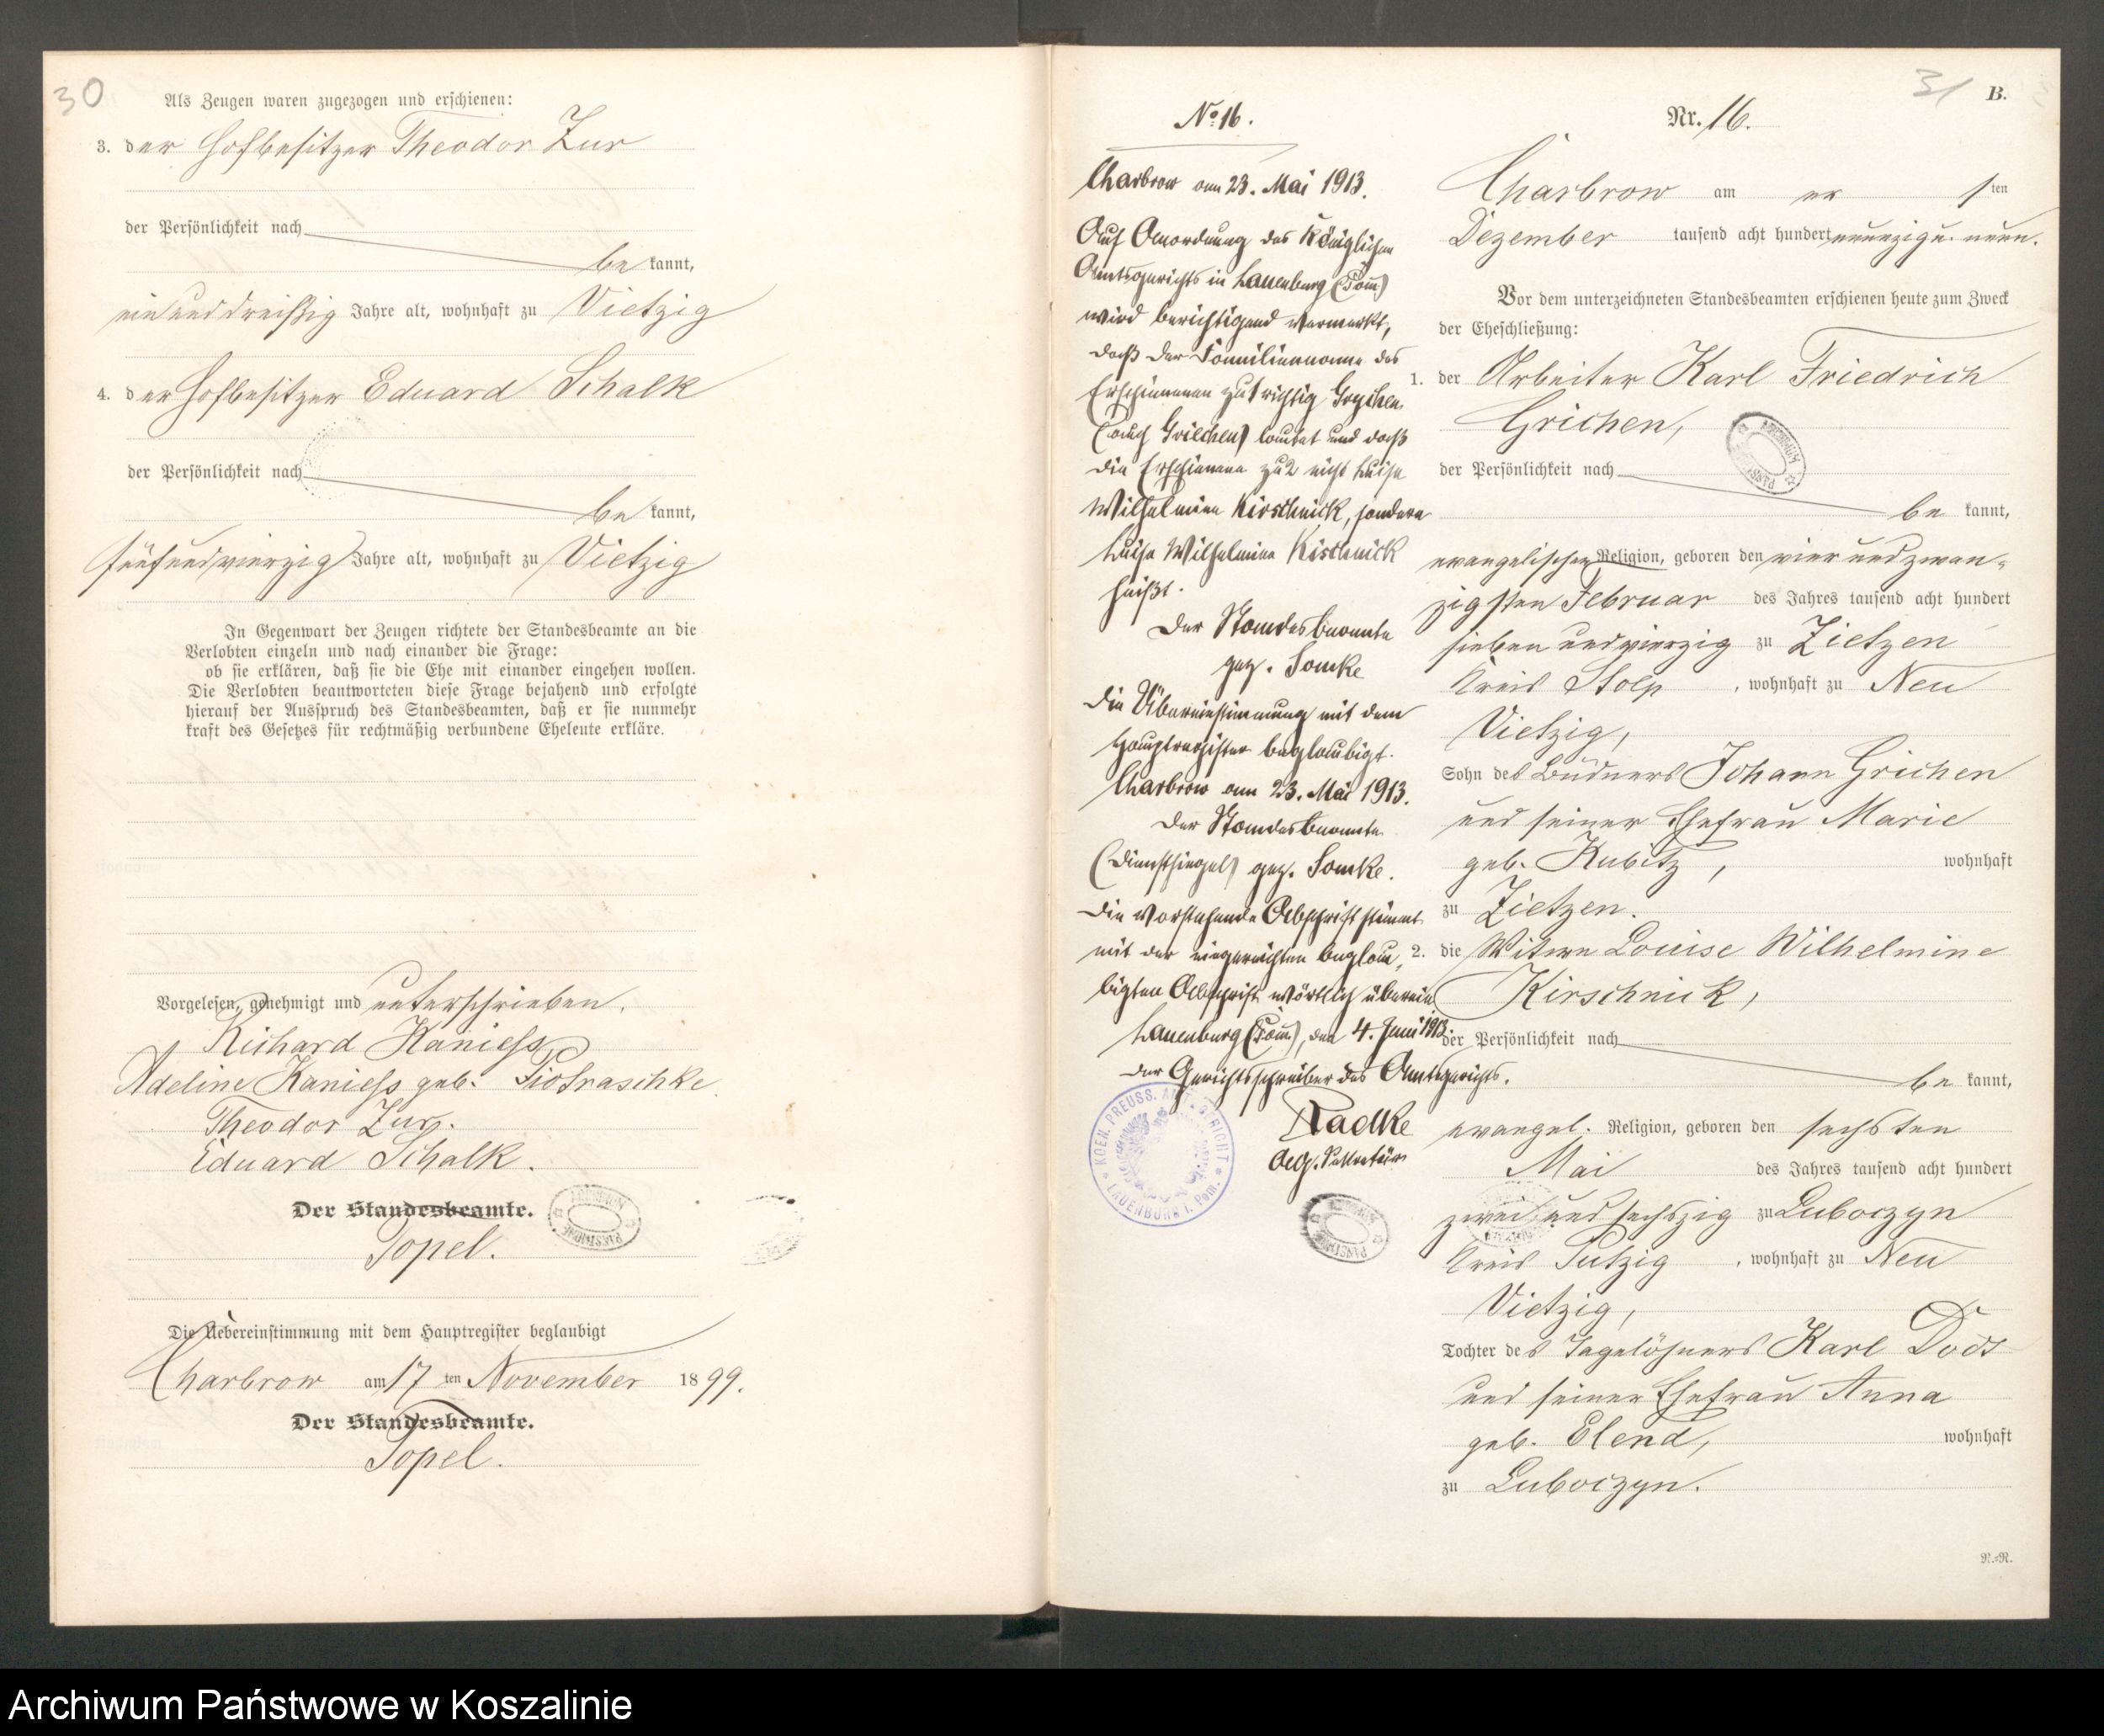 30
Als Zeugen waren zugezogen und erschienen:
3. der Hofbesitzer Theodor Zur
der Persönlichkeit nach
be kannt,
ein und dreißig Jahre alt, wohnhaft zu Vietzig
4. der Hofbesitzer Eduard Schalk
der Persönlichkeit nach
be kannt,
fünfundvierzig Jahre alt, wohnhaft zu Vietzig
In Gegenwart der Zeugen richtete der Standesbeamte an die
Verlobten einzeln und nach einander die Frage:
ob sie erklären, daß sie die Ehe mit einander eingehen wollen.
Die Verlobten beantworteten diese Frage bejahend und erfolgte
hierauf der Ausspruch des Standesbeamten, daß er sie nunmehr
kraft des Gesetzes für rechtmäßig verbundene Eheleute erkläre.
Vorgelesen, genehmigt und unterschrieben.
Richard Kaniess
Adeline Kaniess geb. Piotraschke
Theodor Zur.
Eduard Schalk.
Der Standesbeamte.
Topel.
Die Uebereinstimmung mit dem Hauptregister beglaubigt
Charbrow am 17 ten November 1899.
Der Standesbeamte.
Topel.
No 16.
Charbrow am 23. Mai 1913.
Auf Anordnung des Königlichen
Amtsgerichts in Lauenburg (Pom)
wird berichtigend vermerkt,
daß der Familienname des
Erschienenen zu 1 richtig Grychen
(auch Griechen) lautet und daß
die Erschienene zu 2 nicht Luise
Wilhelmine Kirschnick, sondern
Luise Wilhelmine Kischnick
heißt.
Der Standesbeamte
gez. Lomke
Die Übereinstimmung mit dem
Hauptregister beglaubigt.
Charbrow am 23. Mai 1913.
Der Standesbeamte
(Dienstsiegel) gez. Lomke.
Die vorstehende Abschrift stimmt
mit der eingereichten beglau-
bigten Abschrift wörtlich überein
Lauenburg (Pom), den 4. Juni 1913.
Der Gerichtsschreiber des Amtsgerichts.
Radke
KOEN. PREUSS. AMTSGERICHT
LAUENBURG i. Pom.
31
B.
Nr. 16.
Charbrow am er 1 ten
Dezember tausend acht hundert neunzig u. neun.
Vor dem unterzeichneten Standesbeamten erschienen heute zum Zweck
der Eheschließung:
1. der Arbeiter Karl Friedrich
Grichen,
ARCHIWUM PAŃSTWOWE
der Persönlichkeit nach
be kannt,
evangelischer Religion, geboren den vier und zwan-
zigsten Februar des Jahres tausend acht hundert
sieben und vierzig zu Zietzen
Kreis Stolp, wohnhaft zu Neu
Vietzig,
Sohn des Büdners Johann Grichen
und seiner Ehefrau Marie
geb. Kubitz, wohnhaft
zu Zietzen.
2. die Witwe Louise Wilhelmine
Kirschnick,
der Persönlichkeit nach
be kannt,
evangel. Religion, geboren den sechsten
Mai des Jahres tausend acht hundert
zwei und sechszig zu Luboczyn
Kreis Putzig, wohnhaft zu Neu
Vietzig,
Tochter des Tagelöhners Karl Dodt
und seiner Ehefrau Anna
geb. Elend, wohnhaft
zu Luboczyn.
N.=R.
Archiwum Państwowe w Koszalinie